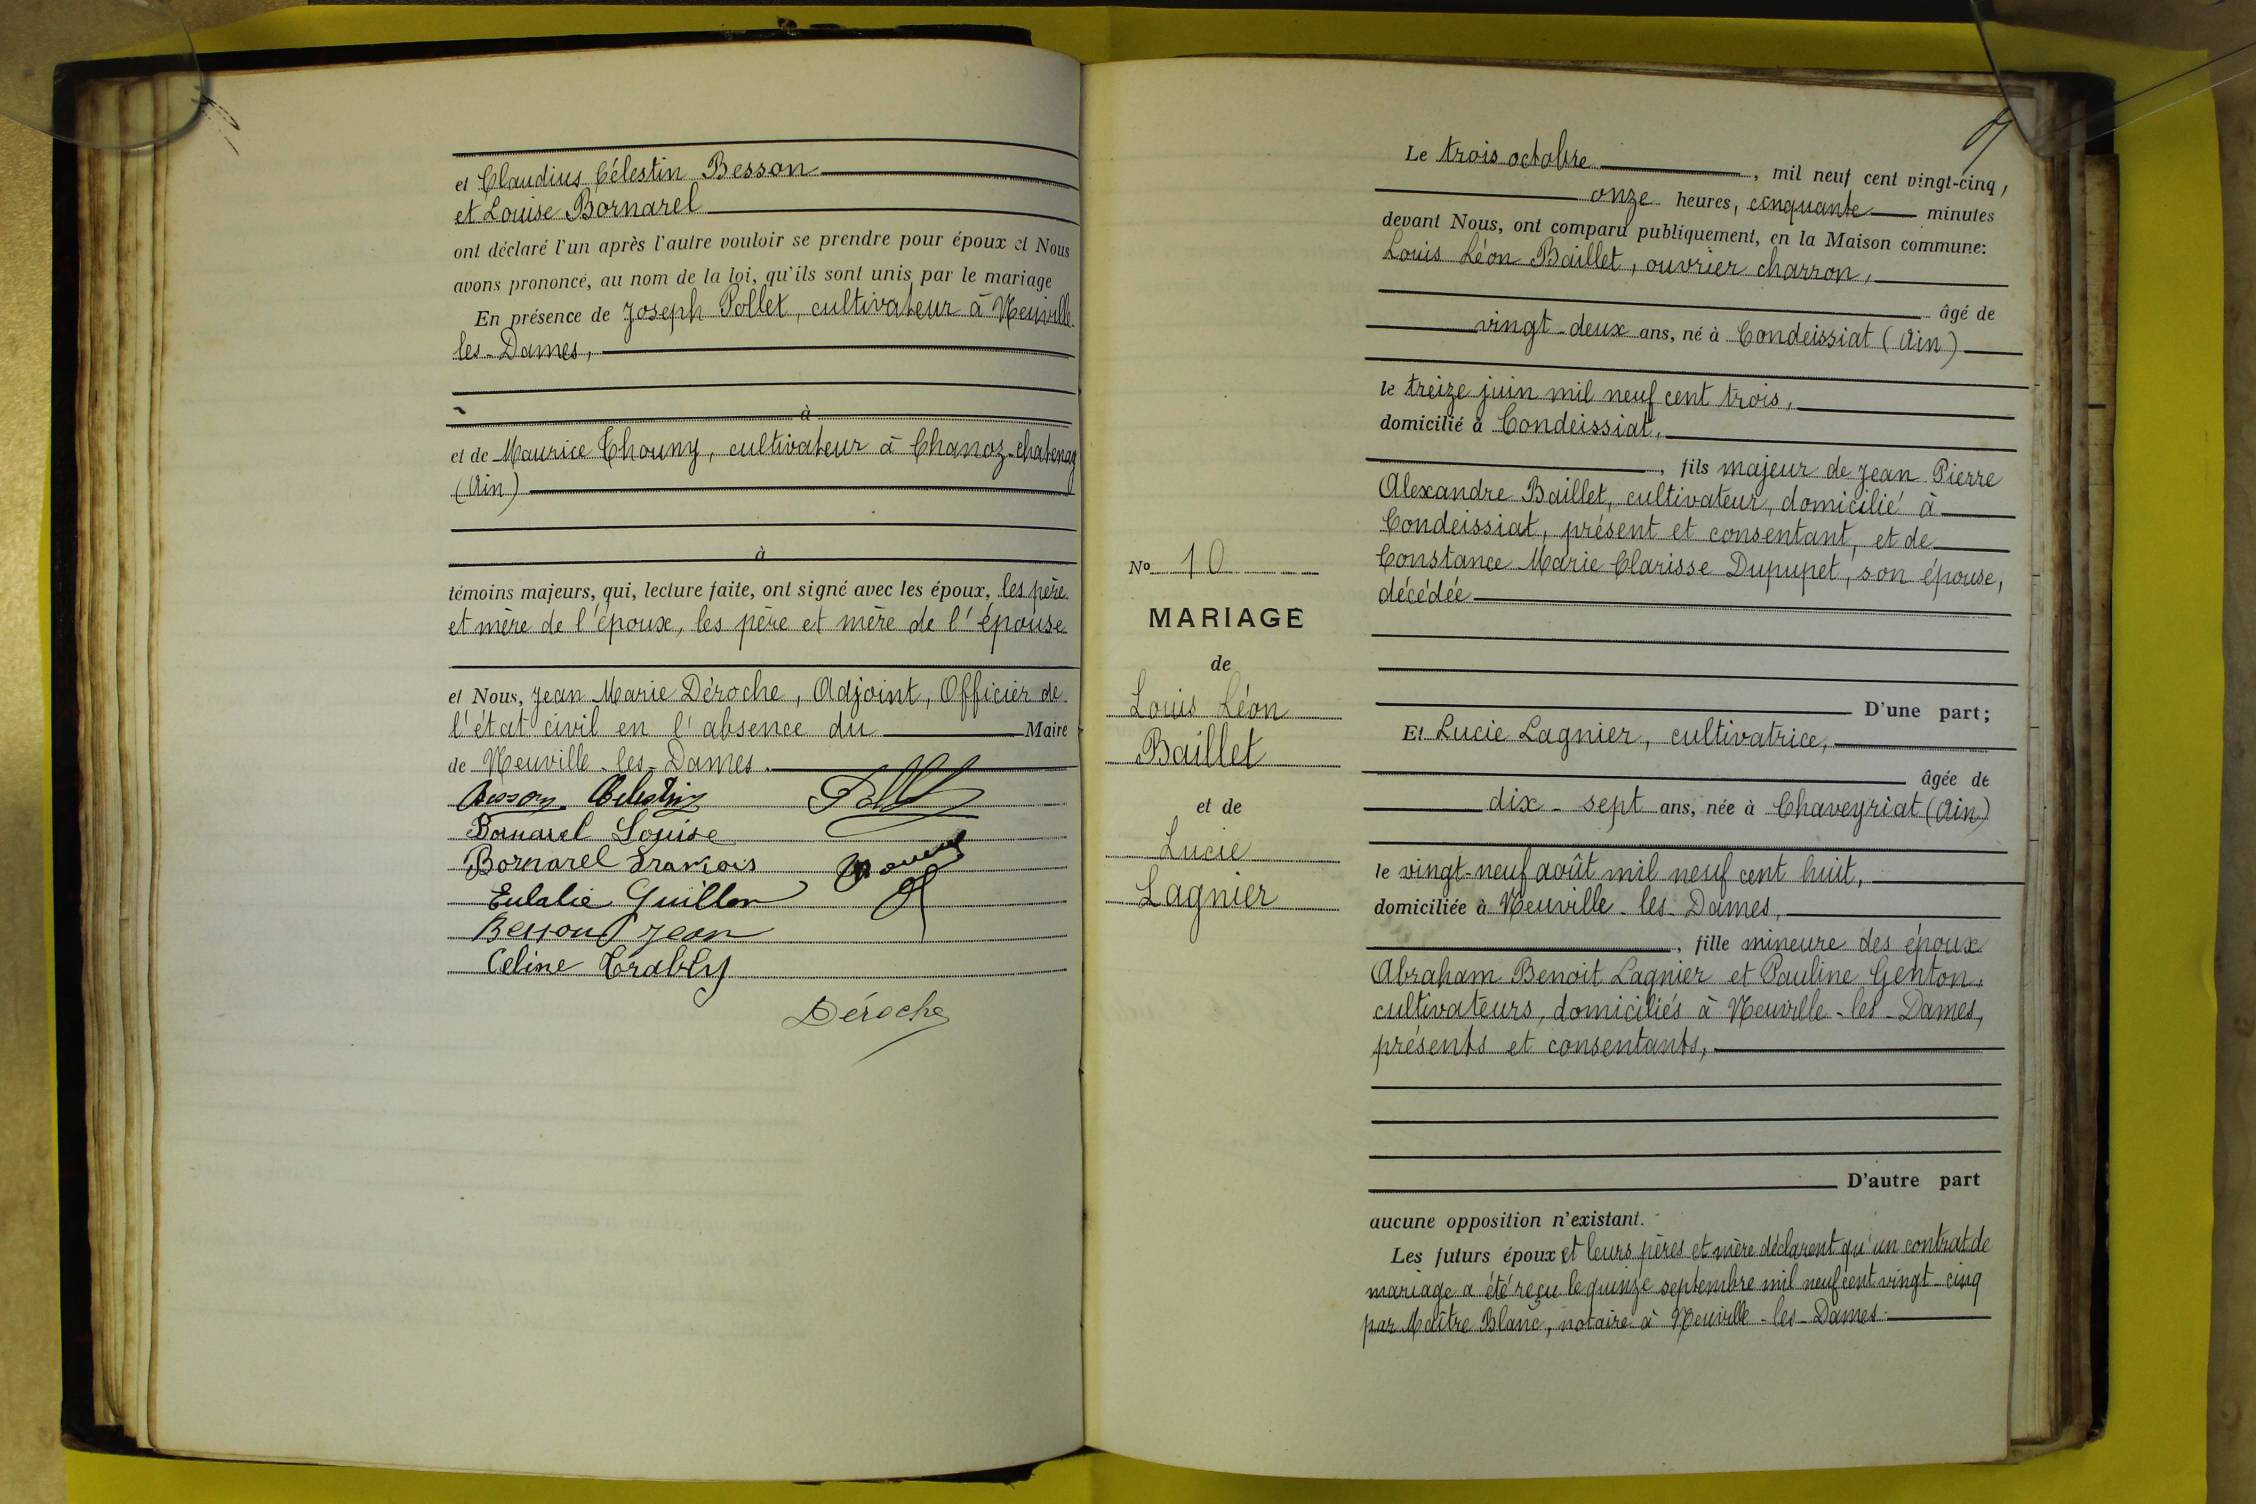 et Claudius Célestin Besson
et Louise Bornarel
ont déclaré l'un après l'autre vouloir se prendre pour époux et Nous
avons prononcé, au nom de la loi, qu'ils sont unis par le mariage
En présence de Joseph Pollet, cultivateur à Neuville-
les-Dames,
à
et de Maurice Thouny, cultivateur à Chanoz-chatenay
(Ain)
à
témoins majeurs, qui, lecture faite, ont signé avec les époux, les père
et mère de l'époux, les père et mère de l'épouse
et Nous, Jean Marie Déroche, Adjoint, Officier de
l'état civil en l'absence du Maire
de Neuville-les-Dames.
Besson Célestin
Bornarel Louise
Bornarel François
Eulalie Guillon
Besson Jean
Celine
Déroche
Le trois octobre, mil neuf cent vingt-cinq,
onze heures, cinquante minutes
devant Nous, ont comparu publiquement, en la Maison commune:
Louis Léon Baillet, ouvrier charron,
âgé de
vingt-deux ans, né à Condeissiat (Ain)
le treize juin mil neuf cent trois,
domicilié à Condeissiat,
, fils majeur de Jean Pierre
Alexandre Baillet, cultivateur, domicilié à
Condeissiat, présent et consentant, et de
Constance Marie Clarisse Dupupet, son épouse,
décédée
No 10
MARIAGE
de
Louis Léon
Baillet
et de
Lucie
Lagnier
D'une part;
Et Lucie Lagnier, cultivatrice,
âgée de
dix-sept ans, née à Chaveyriat (Ain)
le vingt-neuf août mil neuf cent huit,
domiciliée à Neuville-les-Dames,
, fille mineure des époux
Abraham Benoit Lagnier et Pauline Genton,
cultivateurs, domiciliés à Neuville-les-Dames,
présents et consentants,
D'autre part
aucune opposition n'existant.
Les futurs époux et leurs pères et mère déclarent qu'un contrat de
mariage a été reçu le quinze septembre mil neuf cent vingt-cinq
par Maître Blanc, notaire à Neuville-les-Dames.